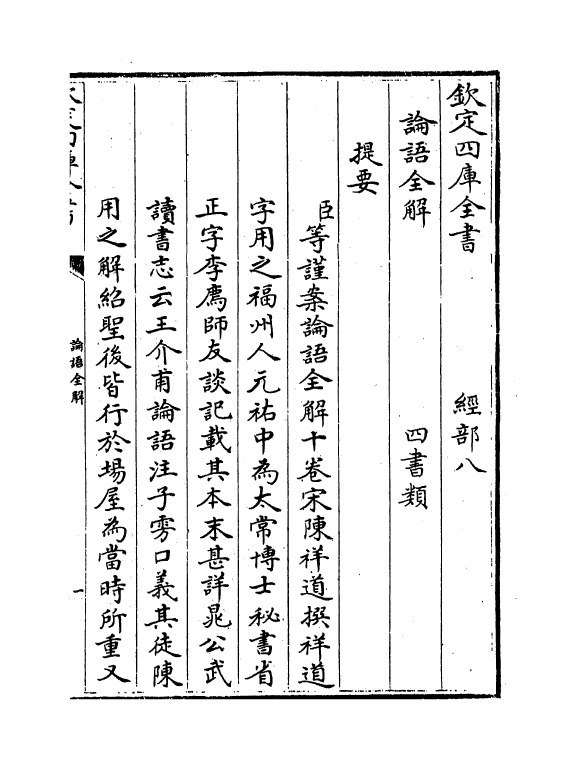 欽定四庫全書　經部八
論語全解　四書類
提要
臣等謹案論語全解十卷宋陳祥道撰祥道
字用之福州人元祐中為太常博士秘書省
正字李廌師友談記載其本末甚詳晁公武
讀書志云王介甫論語注子雱口義其徒陳
用之解紹聖後皆行於場屋為當時所重又
欽定四庫全書
論語全解
一